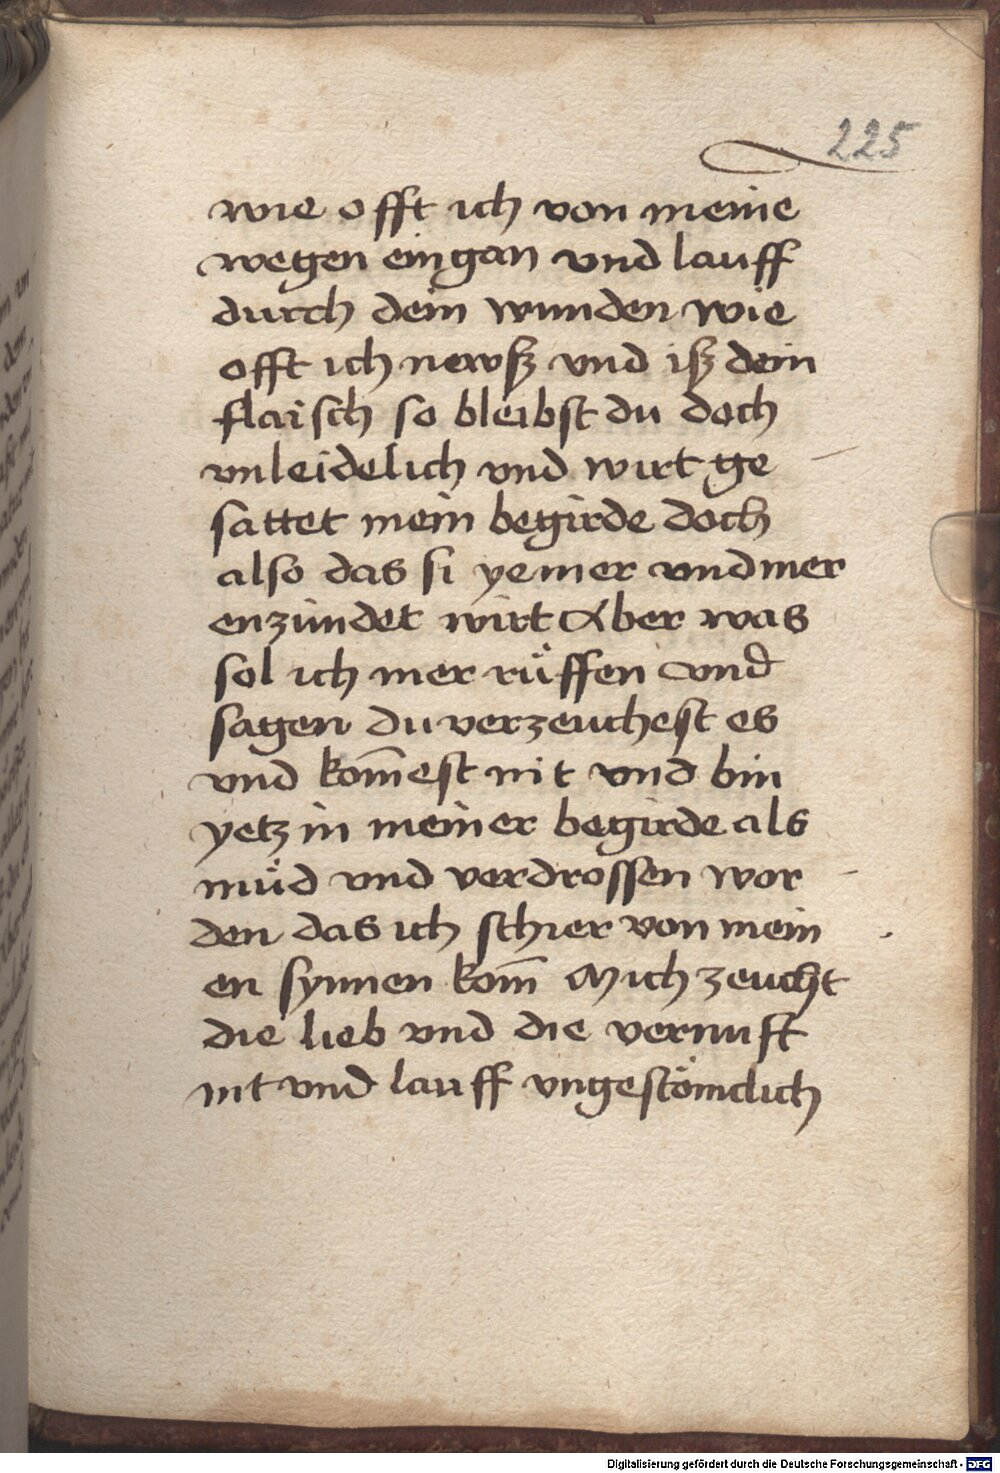 225
wie offt ich von meine
wegen eingan vnd lauff
durch dein wunden wie
offt ich newsz vnd isz dein
flaisch so bleibst du doch
vnleidelich vnd wirt ge
sattet mein begirde doch
also das si ye mer vnd mer
enzündet wirt Aber was
sol ich mer rüffen vnd
sagen du verzeuchest es
vnd kom̄est nit vnd bin
yetz in meiner begirde als
müd vnd verdrossen wor
den das ich schier von mein
en synnen kom̄ Mich zeucht
die lieb vnd die vernuft
nit vnd lauff vngestömclich
Digitalisierung gefördert durch die Deutsche Forschungsgemeinschaft - DFG